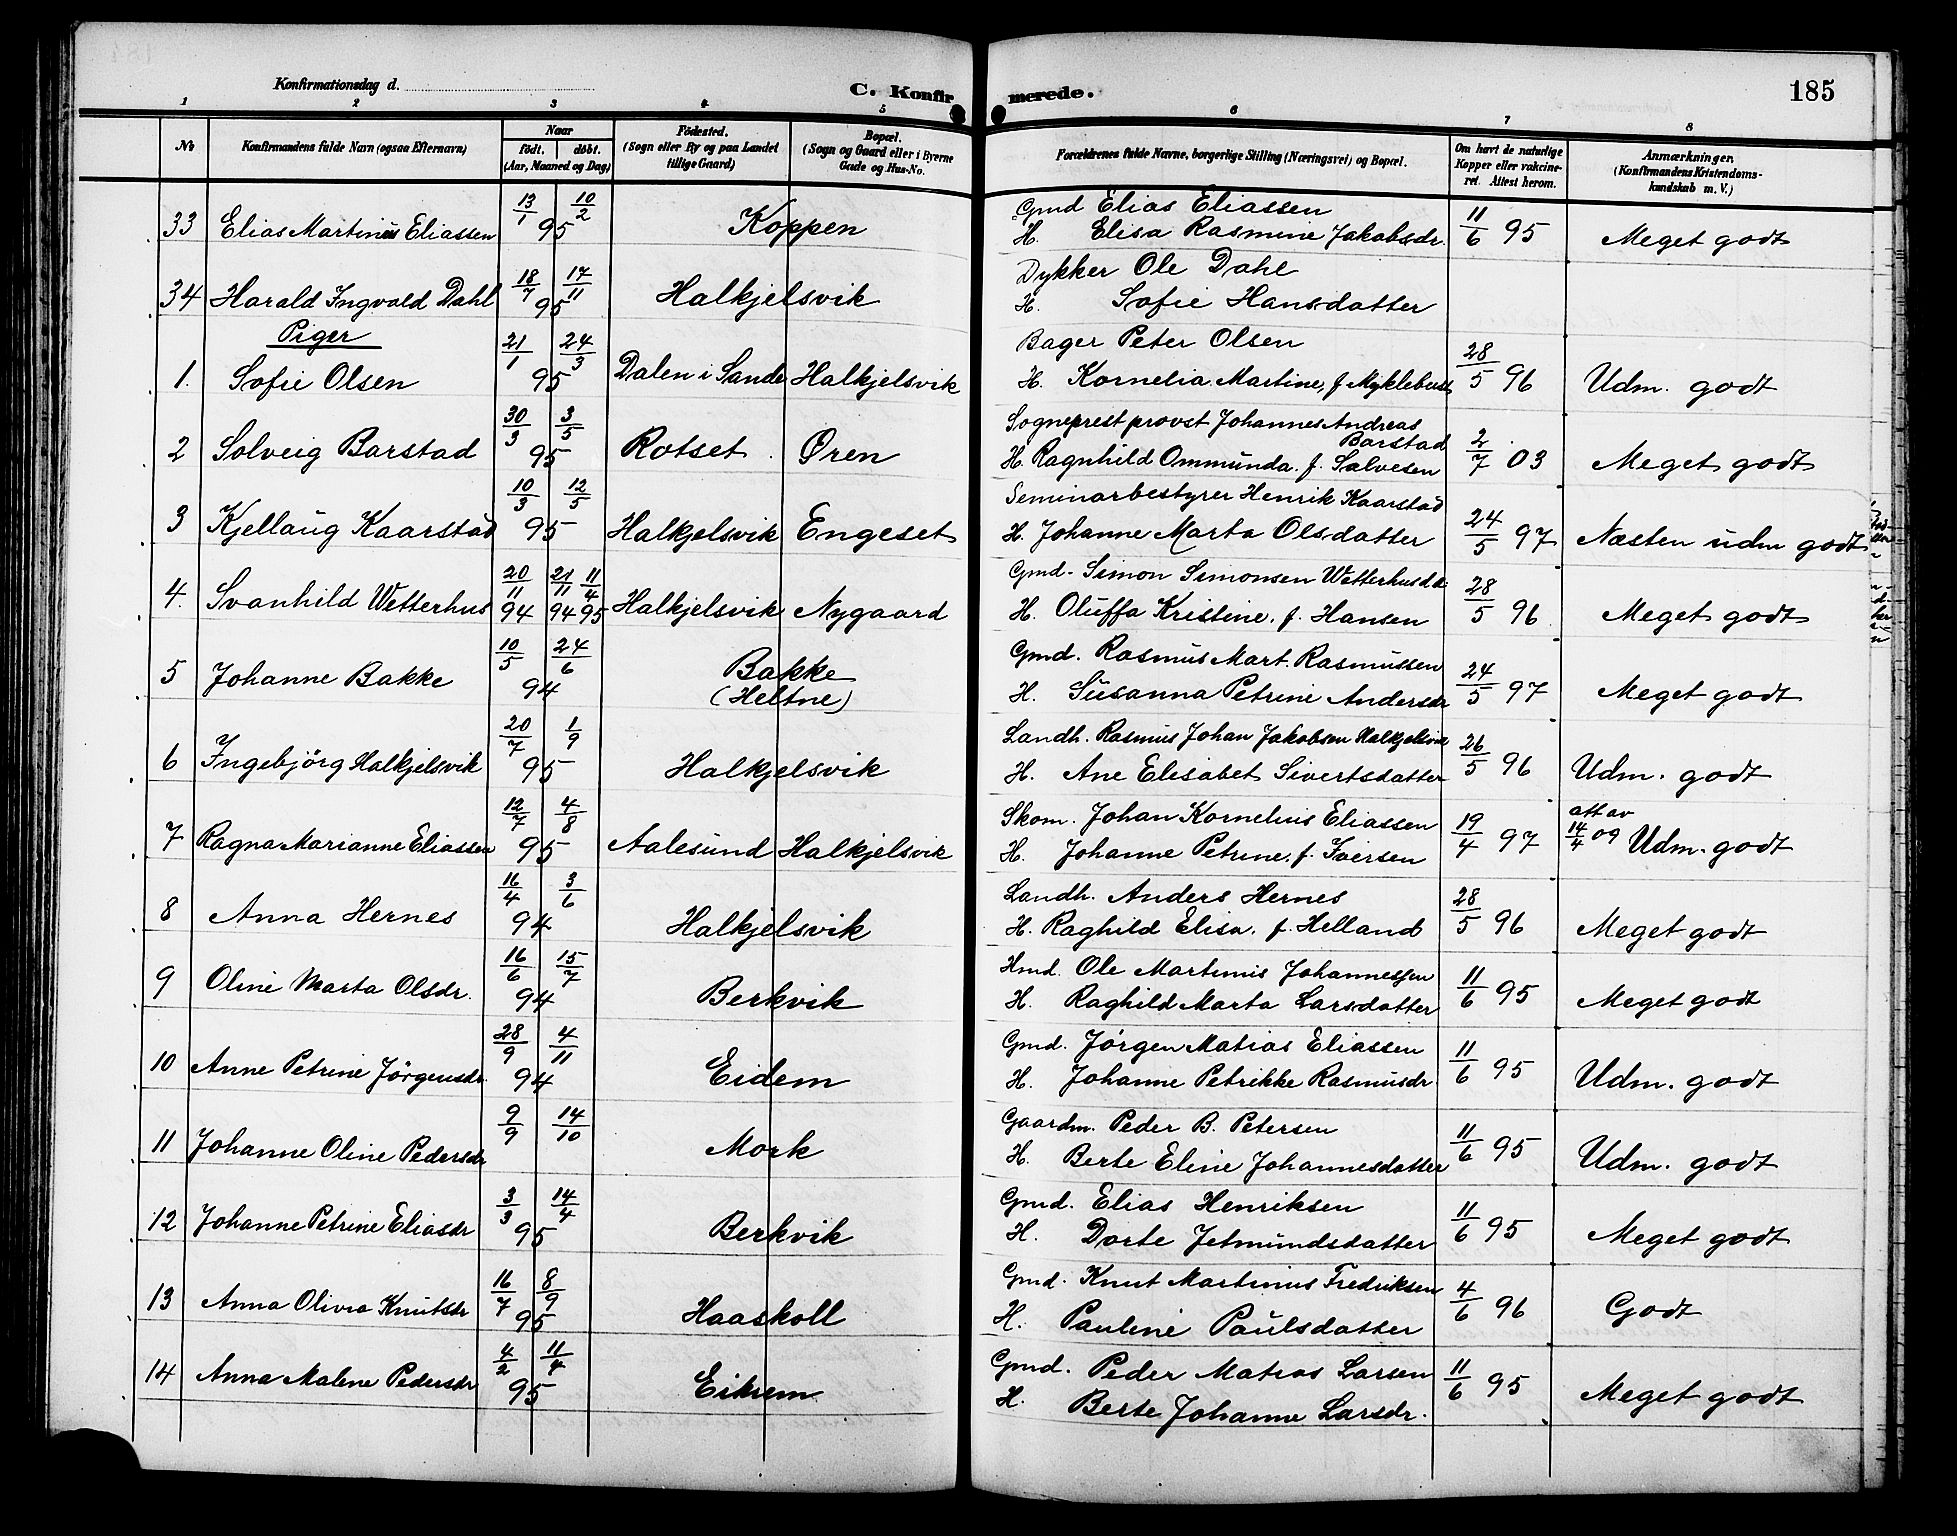 Konfirmationsdag d.
C. Konfirmerede.
185
1 2 3 4 5 6 7 8
No
Konfirmandens fulde Navn (ogsaa Efternavn)
Naar
födt. döbt.
(Aar, Maaned og Dag)
Födested.
(Sogn eller By og paa Landet
tillige Gaard)
Bopæl.
(Sogn og Gaard eller i Byerne
Gade og Hus-No.
Forældrenes fulde Navne, borgerlige Stilling (Næringsvei) og Bopæl.
Om havt de naturlige
Kopper eller vakcine-
ret. Attest herom.
Anmærkninger.
(Konfirmandens Kristendoms-
kundskab m. V.)
33 Elias Martinus Eliassen 13/1 10/2 95 Koppen Gmd Elias Eliassen
H. Elisa Rasmine Jakobsdr. 11/6 95 Meget godt
34 Harald Ingvald Dahl 18/7 17/11 95 Halkjelsvik Dykker Ole Dahl
H. Sofie Hansdatter
Piger
1. Sofie Olsen 21/1 24/3 95 Dalen i Sande Halkjelsvik Bager Peter Olsen
H. Kornelia Martine, f. Myklebust 28/5 96 Udm. godt
2 Solveig Barstad 30/3 3/5 95 Rotset Øren Sogneprest provst Johannes Andreas
Barstad
H. Ragnhild Ommunda. f. Salvesen 2/7 03 Meget godt
3 Kjellaug Kaarstad 10/3 12/5 95 Halkjelsvik Engeset Seminarbestyrer Henrik Kaarstad
H. Johanne Marta Olsdatter 24/5 97 Næsten udm godt
4. Svanhild Wetterhus 20/11 94 21/11 94 11/4 95 Halkjelsvik Nygaard Gmd. Simon Simonsen Wetterhus
H. Oluffa Kristine. f. Hansen 28/5 96 Meget godt
5 Johanne Bakke 10/5 24/6 94 Bakke
(Heltne) Gmd. Rasmus Mart. Rasmussen
H. Susanna Petrine Andersdr 24/5 97 Meget godt
6 Ingebjörg Halkjelsvik 20/7 1/9 95 Halkjelsvik Landh. Rasmus Johan Jakobsen Halkjelsvik
H. Ane Elisabet Sivertsdatter 26/5 96 Udm. godt
7 Ragna Marianne Eliassen 12/7 4/8 95 Aalesund Halkjelsvik Skom. Johan Kornelius Eliassen
H. Johanne Petrine. f. Iversen 19/4 97 att av 14/4 09 Udm. godt
8 Anna Hernes 16/4 3/6 94 Halkjelsvik Landh. Anders Hernes
H. Raghild Elisa. f. Helland 28/5 96 Meget godt
9 Oline Marta Olsdr. 16/6 15/7 94 Berkvik Hmd. Ole Martinus Johannessen
H. Raghild Marta Larsdatter 11/6 95 Meget godt
10 Anne Petrine Jörgensdr. 28/9 4/11 94 Eidem Gmd. Jörgen Matias Eliassen
H. Johanne Petrikke Rasmusdr. 11/6 95 Udm. godt
11 Johanne Oline Pedersdr 9/9 14/10 Mork Gaardm. Peder B. Petersen
H. Berte Eline Johannesdatter 11/6 95 Udm. godt
12 Johanne Petrine Eliasdr 3/3 14/4 95 Berkvik Gmd. Elias Henriksen
H. Dorte Jetmundsdatter 11/6 95 Meget godt
13 Anna Olivia Knutsdr 16/7 8/9 95 Haaskoll Gmd. Knut Martinus Fredriksen
H. Pauline Paulsdatter 4/6 96 Godt
14 Anna Malene Pedersdr 4/2 11/4 95 Eikrem Gmd. Peder Matias Larsen
H. Berte Johanne Larsdr. 11/6 95 Meget godt